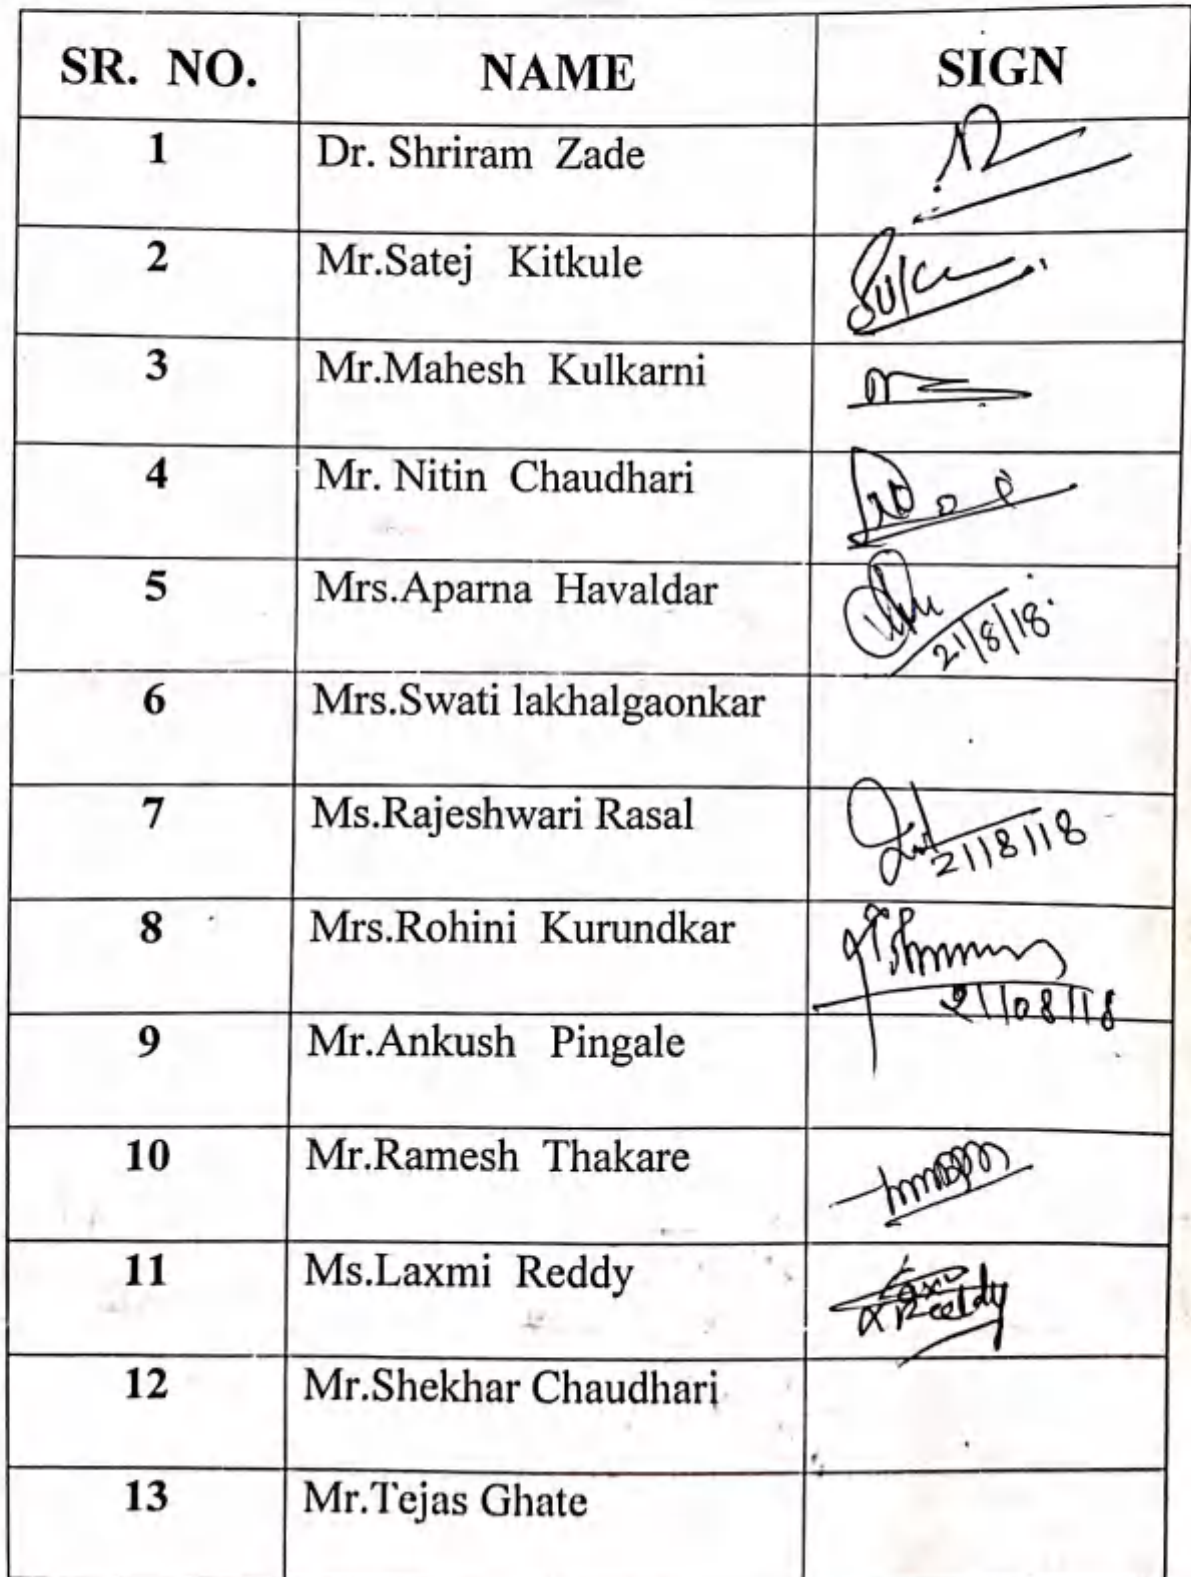 SR. NO. NAME SIGN
1 Dr. Shriram Zade
2 Mr.Satej Kitkule
3 Mr.Mahesh Kulkarni
4 Mr. Nitin Chaudhari
5 Mrs.Aparna Havaldar 21/8/18.
6 Mrs.Swati lakhalgaonkar
7 Ms.Rajeshwari Rasal 21/8/18
8 Mrs.Rohini Kurundkar 21/08/18
9 Mr.Ankush Pingale
10 Mr.Ramesh Thakare
11 Ms.Laxmi Reddy Reddy
12 Mr.Shekhar Chaudhari
13 Mr.Tejas Ghate